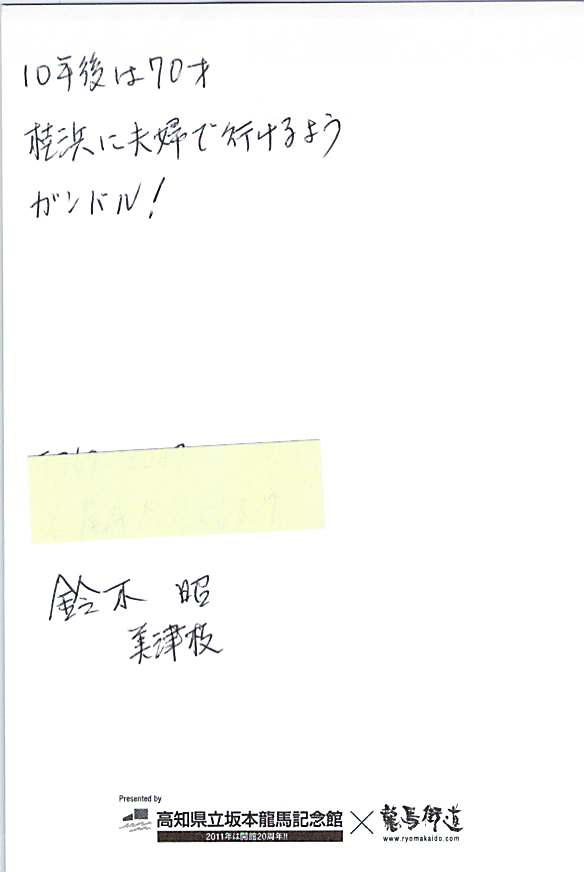 10年後は70才
桂浜に夫婦で行けるよう
ガンバル!
鈴木 昭
美津枝
Presented by
高知県立坂本龍馬記念館 × 龍馬街道
2011年は開館20周年!!
www.ryomakaido.com